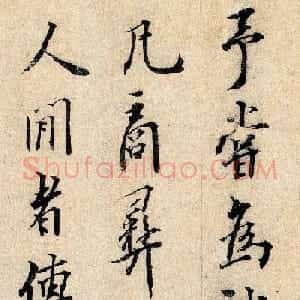 予嘗為
凡商彝
人間者傳
Shufaziliao.com